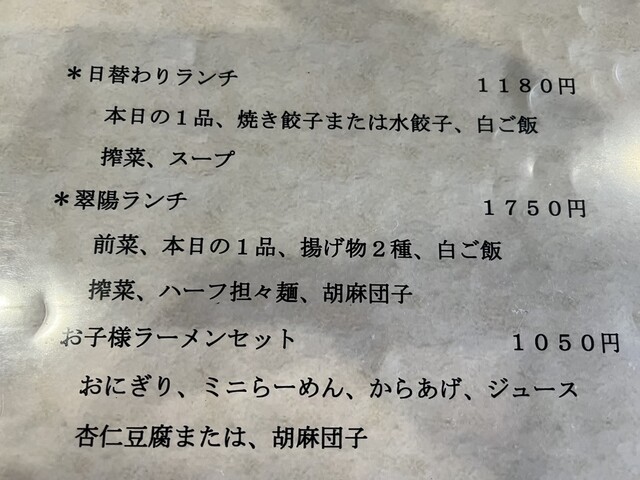 ＊日替わりランチ　１１８０円
本日の１品、焼き餃子または水餃子、白ご飯
搾菜、スープ
＊翠陽ランチ　１７５０円
前菜、本日の１品、揚げ物２種、白ご飯
搾菜、ハーフ担々麺、胡麻団子
お子様ラーメンセット　１０５０円
おにぎり、ミニらーめん、からあげ、ジュース
杏仁豆腐または、胡麻団子